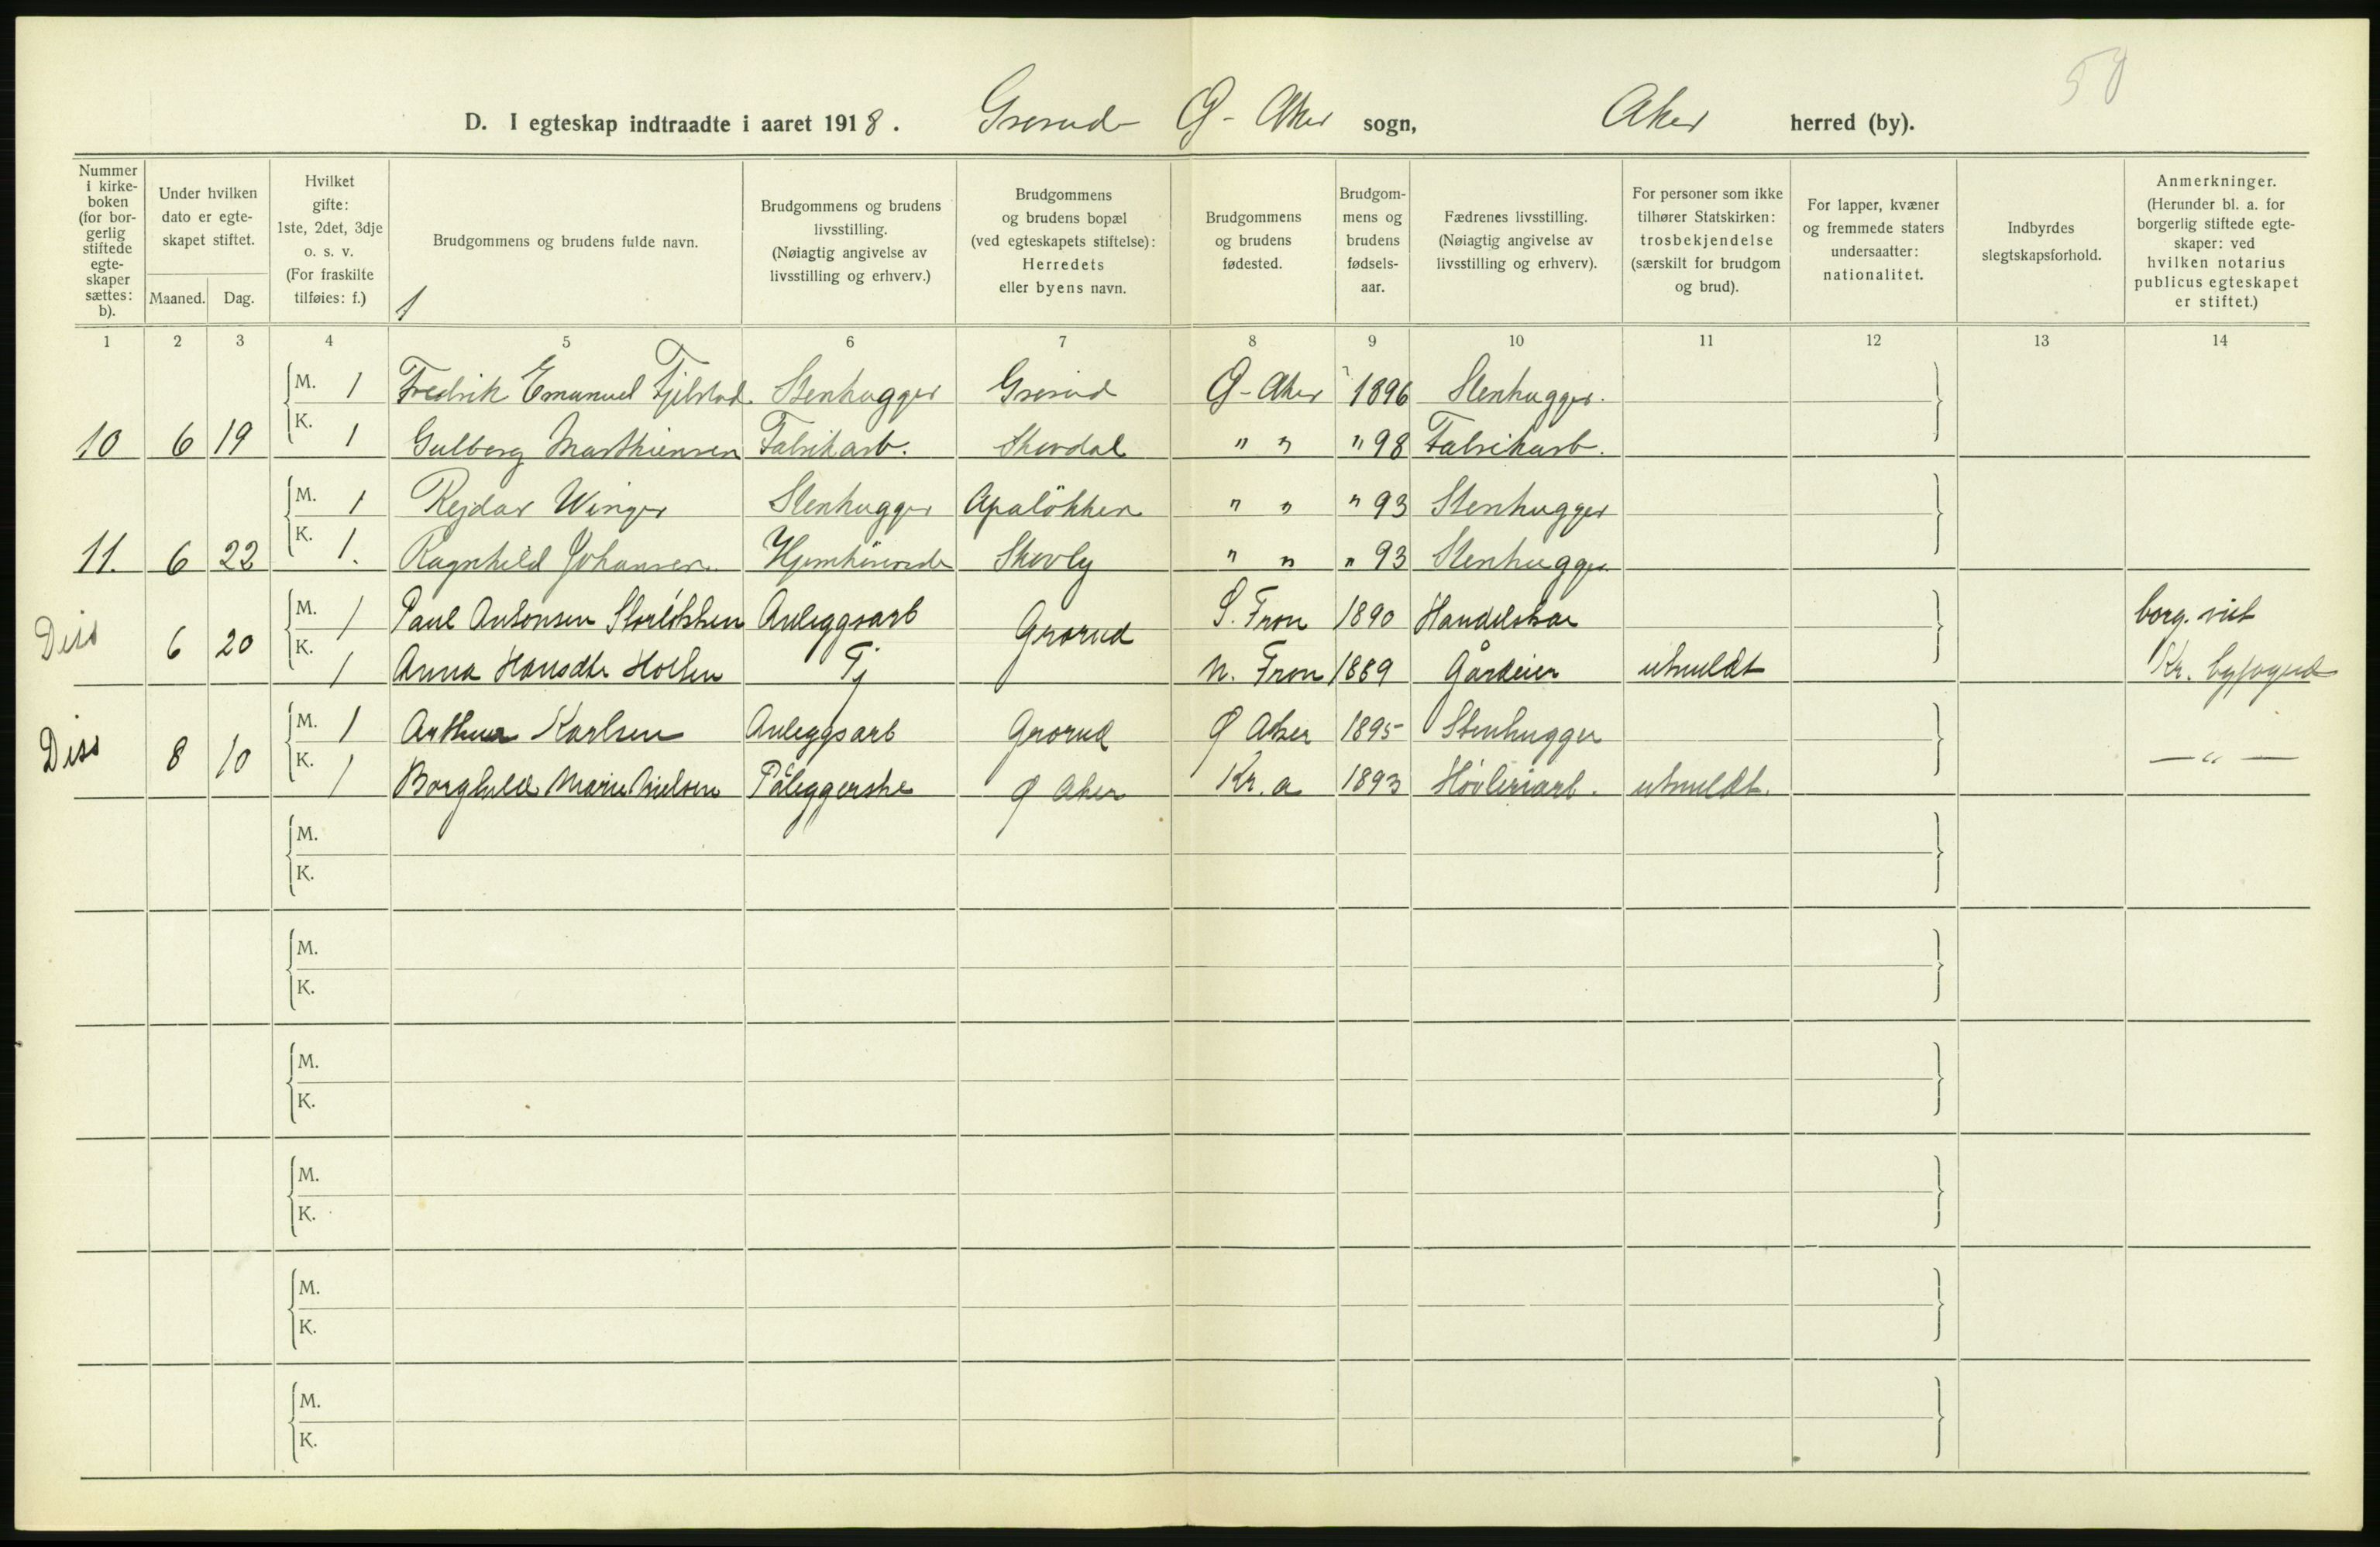 50
D. I egteskap indtraadte i aaret 1918. Grorud Ø-Aker sogn, Aker herred (by).
Nummer i kirke-boken (for bor-gerlig stiftede egte-skaper sættes: b).
Under hvilken dato er egte-skapet stiftet.
Maaned. Dag.
Hvilket gifte: 1ste, 2det, 3dje o. s. v. (For fraskilte tilføies: f.)
1
Brudgommens og brudens fulde navn.
Brudgommens og brudens livsstilling. (Nøiagtig angivelse av livsstilling og erhverv.)
Brudgommens og brudens bopæl (ved egteskapets stiftelse): Herredets eller byens navn.
Brudgommens og brudens fødested.
Brudgom-mens og brudens fødsels-aar.
Fædrenes livsstilling. (Nøiagtig angivelse av livsstilling og erhverv).
For personer som ikke tilhører Statskirken: trosbekjendelse (særskilt for brudgom og brud).
For lapper, kvæner og fremmede staters undersaatter: nationalitet.
Indbyrdes slegtskapsforhold.
Anmerkninger. (Herunder bl. a. for borgerlig stiftede egte-skaper: ved hvilken notarius publicus egteskapet er stiftet.)
1 2 3 4 5 6 7 8 9 10 11 12 13 14
M. 1 Fredrik Emanuel Fjelstad. Stenhugger Grorud Ø-Aker 1896 Stenhugger.
10 6 19 K. 1 Gulborg Marthiensen Fabrikarb. Skovdal " " " 98 Fabrikarb.
M. 1 Rejdar Winger Stenhugger Apaløkken " " " 93 Stenhugger
11. 6 22 K. 1. Ragnhild Johansen. Skovly " " " 93 Stenhugger
Diss 6 20 M. 1 Paul Antonsen Storløkken Anleggsarb Grorud S. Fron 1890 Handelskar borg. viet
K. 1 Anna Hansdtr Holen Tj N. Fron 1889 Gårdeier utmeldt Kr. byfogd
Diss 8 10 M. 1 Arthur Karlsen Anleggsarb Grorud Ø Aker 1895 Stenhugger — " —
K. 1 Borghild Marie Nielsen Påleggerske Ø Aker Kr. a 1893 Høvleriarb. utmeldt.
M.
K.
M.
K.
M.
K.
M.
K.
M.
K.
M.
K.